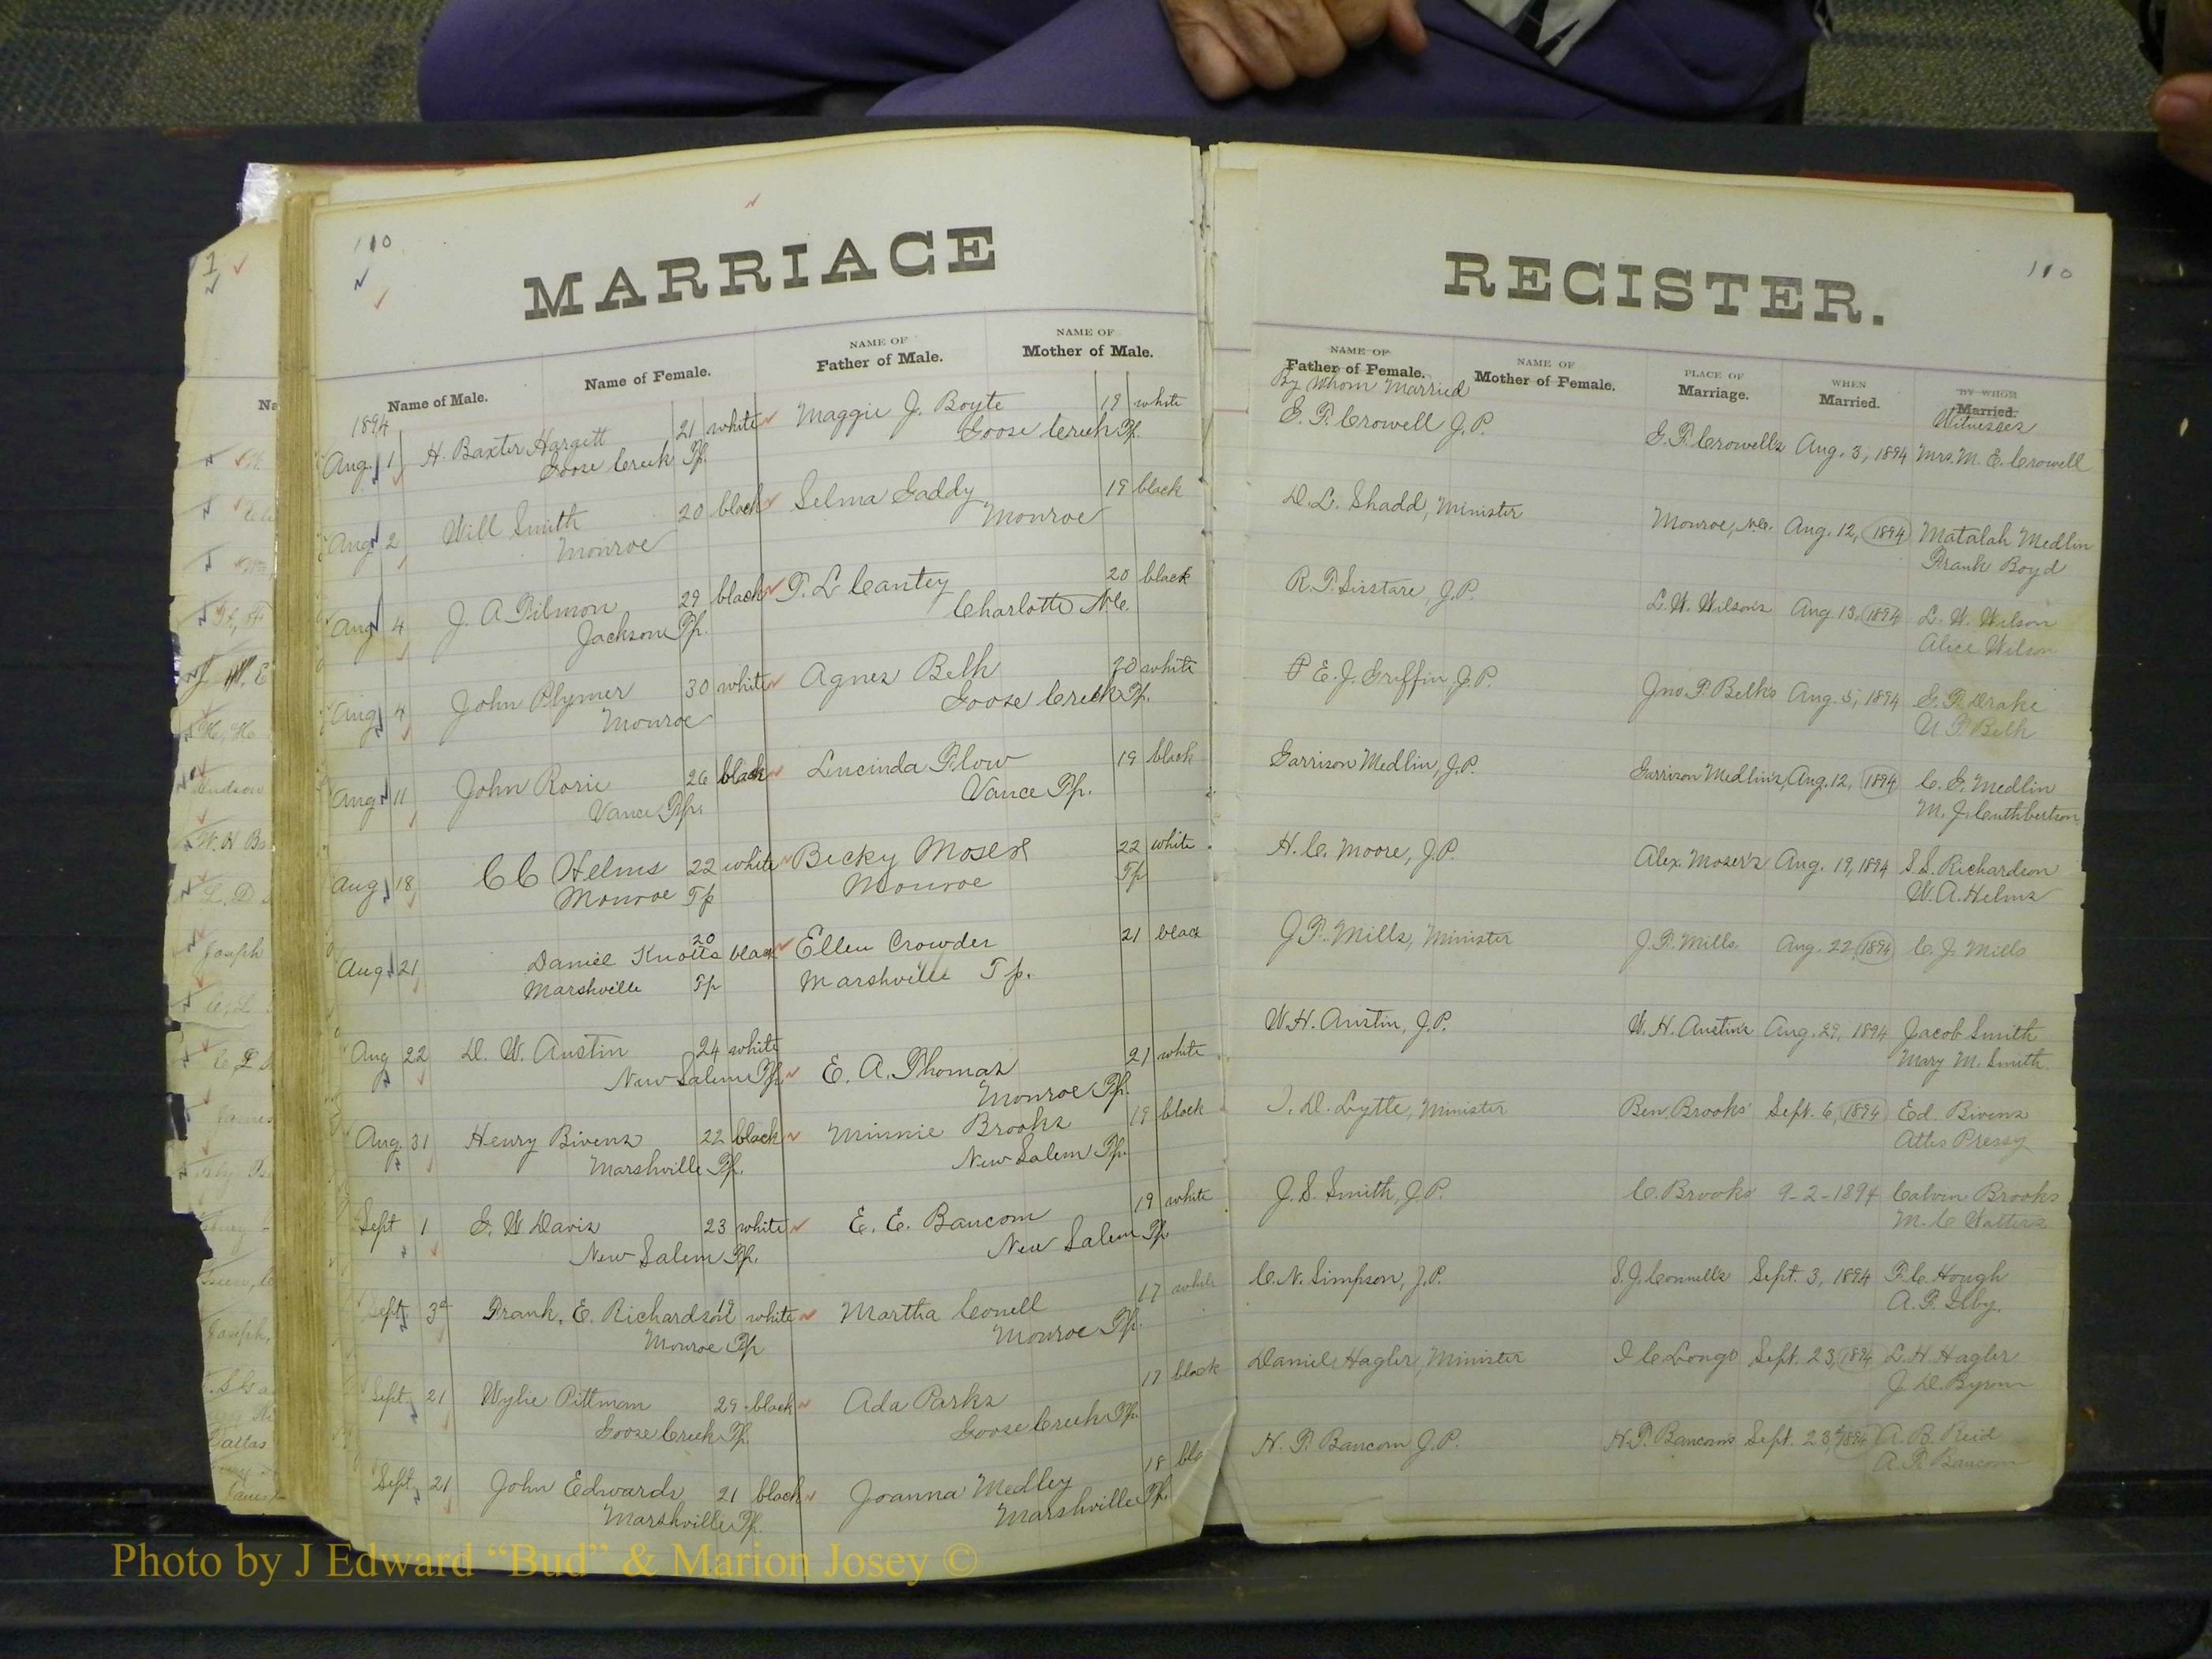 110
MARRIAGE
Name of Male.
Name of Female.
NAME OF
Father of Male.
NAME OF
Mother of Male.
1894
Aug. 1 H. Baxter Hargett 21 white Maggie J. Boyte 19 white
Goose Creek Tp. Goose Creek Tp.
Aug 2 Will Smith 20 black Selma Gaddy 19 black
Monroe Monroe
Aug 4 J. A Tilmon 29 black T. L Cantey 20 black
Jackson Tp. Charlotte N.C.
Aug 4 John Plymer 30 white Agnes Belk 20 white
Monroe Goose Creek Tp.
Aug 11 John Rorie 26 black Lucinda Plow 19 black
Vance Tp. Vance Tp.
Aug 18 C C Helms 22 white Becky Moser 22 white
Monroe Tp Monroe Tp
Aug 21 Daniel Knotts 20 black Ellen Crowder 21 black
Marshville Tp Marshville Tp.
Aug 22 D. W. Austin 24 white E. A. Thomas 21 white
New Salem Tp. Monroe Tp.
Aug. 31 Henry Bivens 22 black Minnie Brooks 19 black
Marshville Tp. New Salem Tp.
Sept 1 G. W Davis 23 white E. E. Baucom 19 white
New Salem Tp. New Salem Tp.
Sept. 3d Frank, E. Richardson 19 white Martha Conell 17 white
Monroe Tp Monroe Tp.
Sept. 21 Wylie Pittman 29 black Ada Parks 17 black
Goose Creek Tp. Goose Creek Tp.
Sept. 21 John Edwards 21 black Joanna Medley 18 bla
Marshville Tp. Marshville Tp.
110
REGISTER.
NAME OF
Father of Female.
By Whom Married
NAME OF
Mother of Female.
PLACE OF
Marriage.
WHEN
Married.
BY WHOM
Married.
Witnesses
G. T. Crowell J.P. G. T. Crowells Aug. 3, 1894 Mrs. M. E. Crowell
D. L. Shadd, Minister Monroe, N.C. Aug. 12, 1894 Matalah Medlin
Frank Boyd
R. T. Sisstare, J.P. L. W. Wilson's Aug 13, 1894 L. W. Wilson
Alice Wilson
P E. J. Griffin J.P. Jno. T. Belk's Aug. 5, 1894 G. T. Drake
U. T. Belk
Garrison Medlin, J.P. Garrison Medlin's, Aug. 12, 1894 C. G. Medlin
M. J. Cuthbertson
H. C. Moore, J.P. Alex. Moser's Aug. 19, 1894 S. S. Richardson
W. A. Helms
J. T. Mills, Minister J. T. Mills. Aug. 22, 1894 C. J. Mills
W. H. Austin, J.P. W. H. Austin's Aug. 29, 1894 Jacob Smith
Mary M. Smith.
I. D. Lytle, Minister Ben Brooks' Sept. 6, 1894 Ed. Bivens
Attis Pressy
J. S. Smith, J.P. C. Brooks' 9-2-1894 Calvin Brooks
M. C Watters
C. N. Simpson, J.P. S. J. Connells Sept. 3, 1894 T. C. Hough
A. T.
Daniel Hagler, Minister I C Longs Sept. 23, 1894 L. H. Hagler
J. D. Byrum
H. T. Baucom J.P. H. T. Baucom's Sept. 23, 1894 A. B. Reid
A. R. Baucom
Photo by J Edward “Bud” & Marion Josey ©